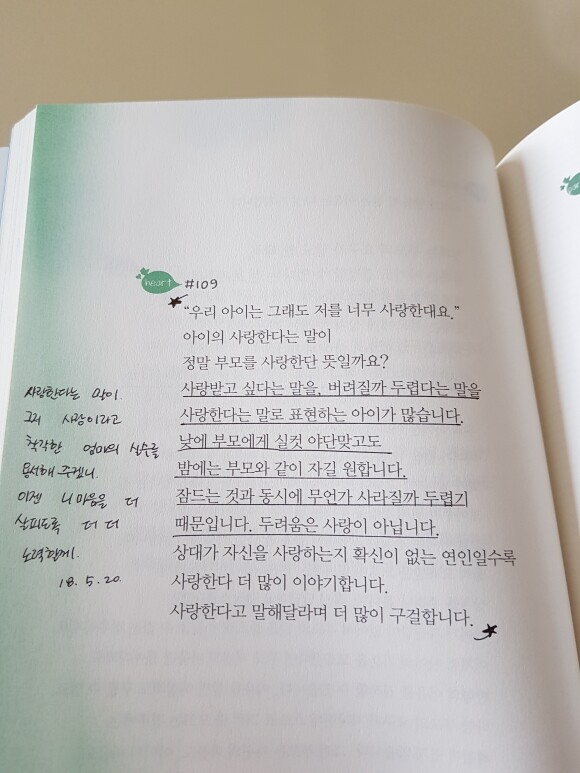 heart #109
“우리 아이는 그래도 저를 너무 사랑한대요.”
아이의 사랑한다는 말이
정말 부모를 사랑한단 뜻일까요?
사랑받고 싶다는 말을, 버려질까 두렵다는 말을
사랑한다는 말로 표현하는 아이가 많습니다.
낮에 부모에게 실컷 야단맞고도
밤에는 부모와 같이 자길 원합니다.
잠드는 것과 동시에 무언가 사라질까 두렵기
때문입니다. 두려움은 사랑이 아닙니다.
상대가 자신을 사랑하는지 확신이 없는 연인일수록
사랑한다 더 많이 이야기합니다.
사랑한다고 말해달라며 더 많이 구걸합니다.
사랑한다는 말이.
그저 사랑이라고
착각한 엄마의 실수를
용서해 주겠니.
이젠 니 마음을 더
살피도록 더 더
노력할게.
18. 5. 20.